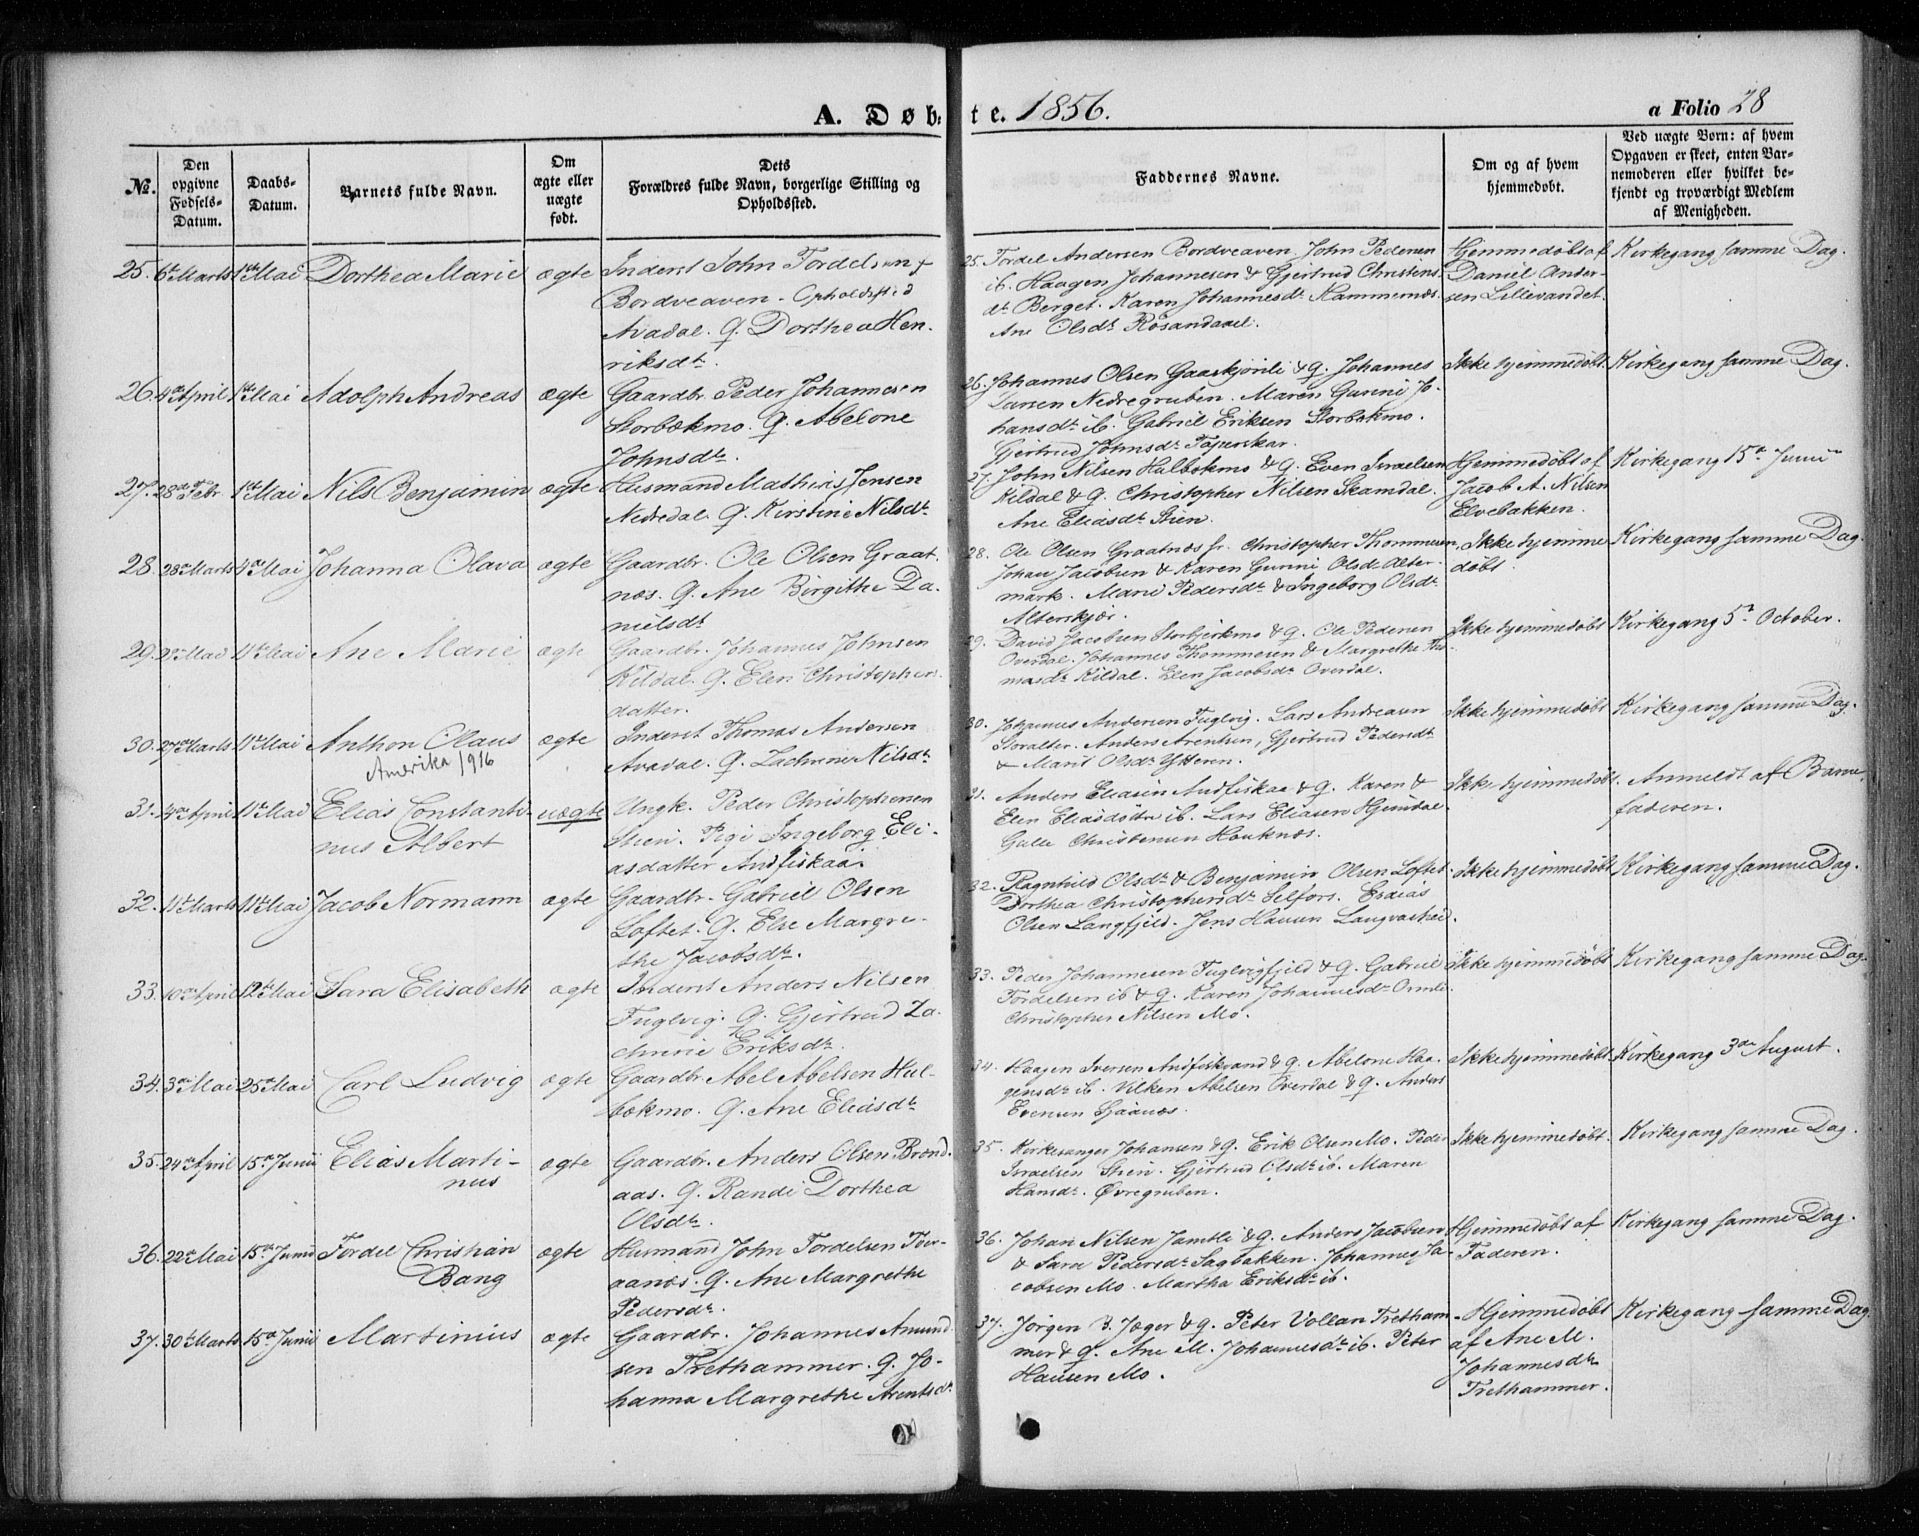 A. Døb-
te. 1856.
a Folio 28
No.
Den opgivne Fødsels-Datum.
Daabs-Datum.
Barnets fulde Navn.
Om ægte eller uægte født.
Dets Forældres fulde Navn, borgerlige Stilling og Opholdssted.
Faddernes Navne.
Om og af hvem hjemmedøbt.
Ved uægte Børn: af hvem Opgaven er skeet, enten Barnemoderen eller hvilket bekjendt og troværdigt Medlem af Menigheden.
25. 6te Marts 1ste Mai Dorthea Marie ægte Inderst John Fordelsen
Bordveaven - Opholdssted
Avadal. Q. Dorthea Hen-
riksdtr.
25. Fordel Andersen Bordveaven, John Pedersen
ib. Haagen Johannesen & Gjertrud Christens-
dtr Berget. Karen Johannesdtr Hammernæs.
Ane Olsdtr Rosandaael.
Hjemmedøbt af
Daniel Ander-
sen Lillevandet.
Kirkegang samme Dag.
26. 4de April 1ste Mai Adolph Andreas ægte Gaardbr. Peder Johannesen
Storbækmo. Q. Abelone
Johnsdtr.
26. Johannes Olsen Gaaskjønli & Q. Johannes
Larsen Nedregruben. Maren Gunni Jo-
hansdtr ib. Gabriel Eriksen Storbækmo.
Gjertrud Johnsdtr
Ikke hjemmedøbt
Kirkegang samme Dag.
27. 28de Febr. 1ste Mai Nils Benjamin ægte Husmand Mathias Jensen
Nedredal. Q. Kirstine Nilsdtr
27. John Nilsen Halbækmo & Q. Even Israelsen
Kildal & Q. Christopher Nilsen Skamdal.
Ane Eliasdtr Stien.
Hjemmedøbt af
Jacob A. Nilsen
Elvebakken.
Kirkegang 15de Junii
28. 28de Marts 4de Mai Johanna Olava ægte Gaardbr. Ole Olsen Graat-
næs. Q. Ane Birgithe Da-
nielsdtr
28. Ole Olsen Graatnæs sr. Christopher Thommesen,
Johan Jacobsen & Karen Gunni Olsdtr Alter-
mark. Marie Pedersdtr & Ingeborg Olsdtr
Alterskjær.
Ikke hjemme
døbt.
Kirkegang samme Dag.
29. 11te Mai Ane Marie ægte Gaardbr. Johannes Johnsen
Kildal. Q. Elen Christophers
datter.
29. David Jacobsen Storbjerkmo & Q. Ole Pedersen
Overdal. Johannes Thommesen & Margrethe Tho-
masdtr Kildal. Elen Jacobsdtr Overdal.
Ikke hjemmedøbt
Kirkegang 5te October.
30. 27de Marts 11te Mai Anthon Olaus ægte Inderst Thomas Andersen
Amerika 1916
Avadal. Q. Zachrine Nilsdtr
30. Johannes Andersen Fuglvig. Lars Andreasen
Storalter. Anders Arentsen, Gjertrud Pedersdtr
& Marit Olsdtr Ytteren.
Ikke hjemmedøbt
Kirkegang samme Dag.
31. 4de April 11te Mai Elias Constanti-
nus Albert
uægte Ungk. Peder Christophersen
Stien. Pige Ingeborg Eli-
asdatter Andfiskaa.
31. Anders Eliasen Andfiskaa & Q. Karen &
Elen Eliasdøttre ib. Lars Eliasen Hjemdal
Gulle Christensen Hauknæs.
Ikke hjemmedøbt.
Anmeldt af Barne-
faderen.
32. 11te Marts 11te Mai Jacob Normann ægte Gaardbr. Gabriel Olsen
Loftet. Q. Else Margre-
the Jacobsdtr.
32. Ragnhild Olsdtr & Benjamin Olsen Loftet
Dorthea Christophersdtr Selfors. Esaias
Olsen Langfjeld. Jens Hansen
Ikke hjemmedøbt
Kirkegang samme Dag.
33. 10de April 12te Mai Sara Elisabeth ægte Inderst Anders Nilsen
Fuglvig. Q. Gjertrud Za-
chrine Eriksdtr.
33. Peder Johannesen Fuglvigfjeld & Q. Gabriel
Fordelsen ib & Q. Karen Johannesdtr
Christopher Nilsen Mo.
Ikke hjemmedøbt
Kirkegang samme Dag
34. 3die Mai 25de Mai Carl Ludvig ægte Gaardbr. Abel Abelsen Hal-
bækmo. Q. Ane Eliasdtr
34. Haagen Iversen Andfiskvand & Q. Abelone Haa-
gensdtr ib. Vilken Abelsen Overdal & Q. Anders
Evensen Sjaanæs.
Ikke hjemmedøbt
Kirkegang 3die August.
35. 24de April 15de Junii Elias Marti-
nus
ægte Gaardbr. Anders Olsen Brend-
aas. Q. Randi Dorthea
Olsdtr.
35. Kirkesanger Johansen & Q. Erik Olsen Mo. Peder
Israelsen Stien. Gjertrud Olsdtr ib. Maren
Hansdtr. Øvregruben.
Ikke hjemmedøbt.
Kirkegang samme Dag.
36. 22de Mai 15de Junii Fordel Christian
Bang
ægte Husmand John Fordelsen Tver-
aanæs. Q. Ane Margrethe
Pedersdtr.
36. Johan Nilsen Jamtli & Q. Anders Jacobsen
& Sara Pedersdtr Sagbakken. Johannes Ja-
cobsen Mo. Martha Eriksdtr ib.
Hjemmedøbt af
Faderen.
Kirkegang samme Dag.
37. 30te Marts 15de Junii Martinius ægte Gaardbr. Johannes Amund-
sen Trethammer. Q. Jo-
hanna Margrethe Arentsdtr
37. Jørgen B. Jæger & Q. Peter Vollan Tretham-
mer & Q. Ane M. Johannesdtr ib. Peter
Hansen Mo.
Hjemmedøbt
af Ane M.
Johannesdtr
Trethammer.
Kirkegang samme Dag